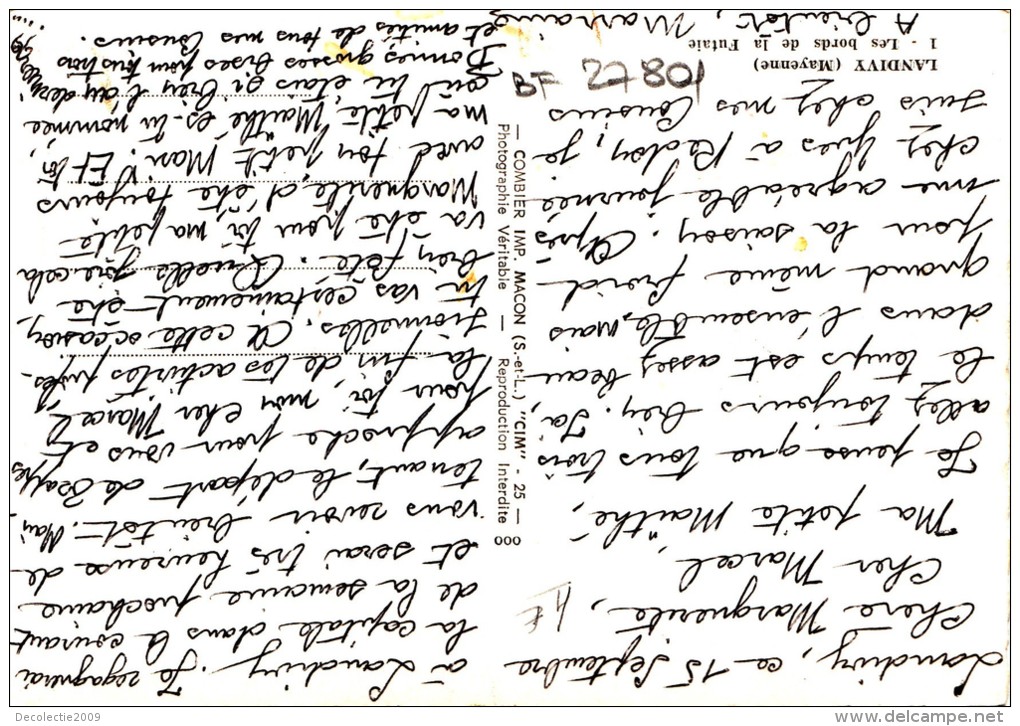 LANDIVY (Mayenne)
1 - Les bords de la Futaie
Landivy, ce 15 Septembre
Chère Marguerite,
Cher Marcel,
Ma petite Maïthé,
Je pense que tous trois
allez toujours bien. Ici,
le temps est assez beau
dans l'ensemble, mais
quand même froid
pour la saison. Après
une agréable journée
chez Yves à Redon, je
suis chez mes Cousins
à Landivy. Je regagnerai
la capitale dans le courant
de la semaine prochaine
et serai très heureuse de
vous revoir bientôt. Main-
tenant, le départ de
approche pour vous et
pour toi, mon cher Marcel,
la fin de tes activités profes-
sionnelles. A cette occasion,
tu vas certainement être
bien fêté. Quelle joie cela
va être pour toi, ma petite
Marguerite, d'être toujours
avec ton petit Mari! Et toi,
ma petite Maïthé es-tu nommée
où tu étais si bien l'an dernier
Bonnes grosses bises pour tous trois
et amitiés de tous mes Cousins.
A bientôt, Marraine
BF 27801
— COMBIER IMP. MACON (S.-et-L.) "CIM" - 25 —
Photographie Véritable — Reproduction Interdite
000
Decolectie2009
www.delcampe.net